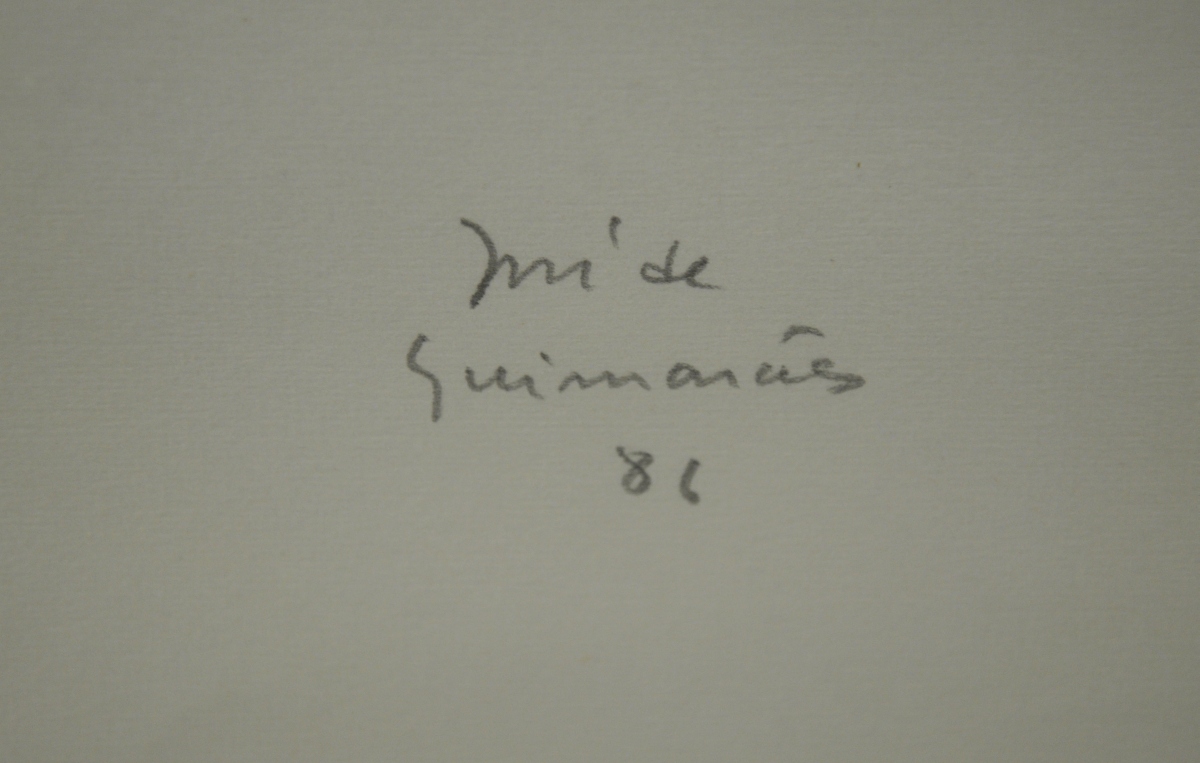 José de
Guimarães
86